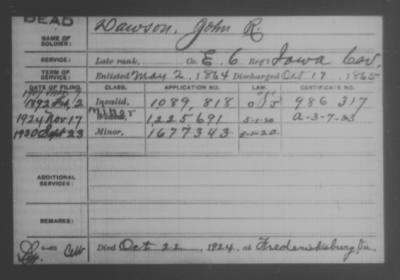 DEAD
NAME OF SOLDIER: Dawson, John R.
SERVICE: Late rank, Co. E, 6 Reg't Iowa Cav.
TERM OF SERVICE: Enlisted May 2, 1864 Discharged Oct 17, 1865
DATE OF FILING. CLASS. APPLICATION NO. LAW. CERTIFICATE NO.
1892 2 Invalid, 1089,818 986 317
1924 Nov 17 Minor 1,225,691 5-1-20 A-3-7-23
1930 Sept 23 Minor, 1677343 5-1-20
ADDITIONAL SERVICES:
REMARKS:
Died Oct 22, 1924, at Fredericksburg Ia.